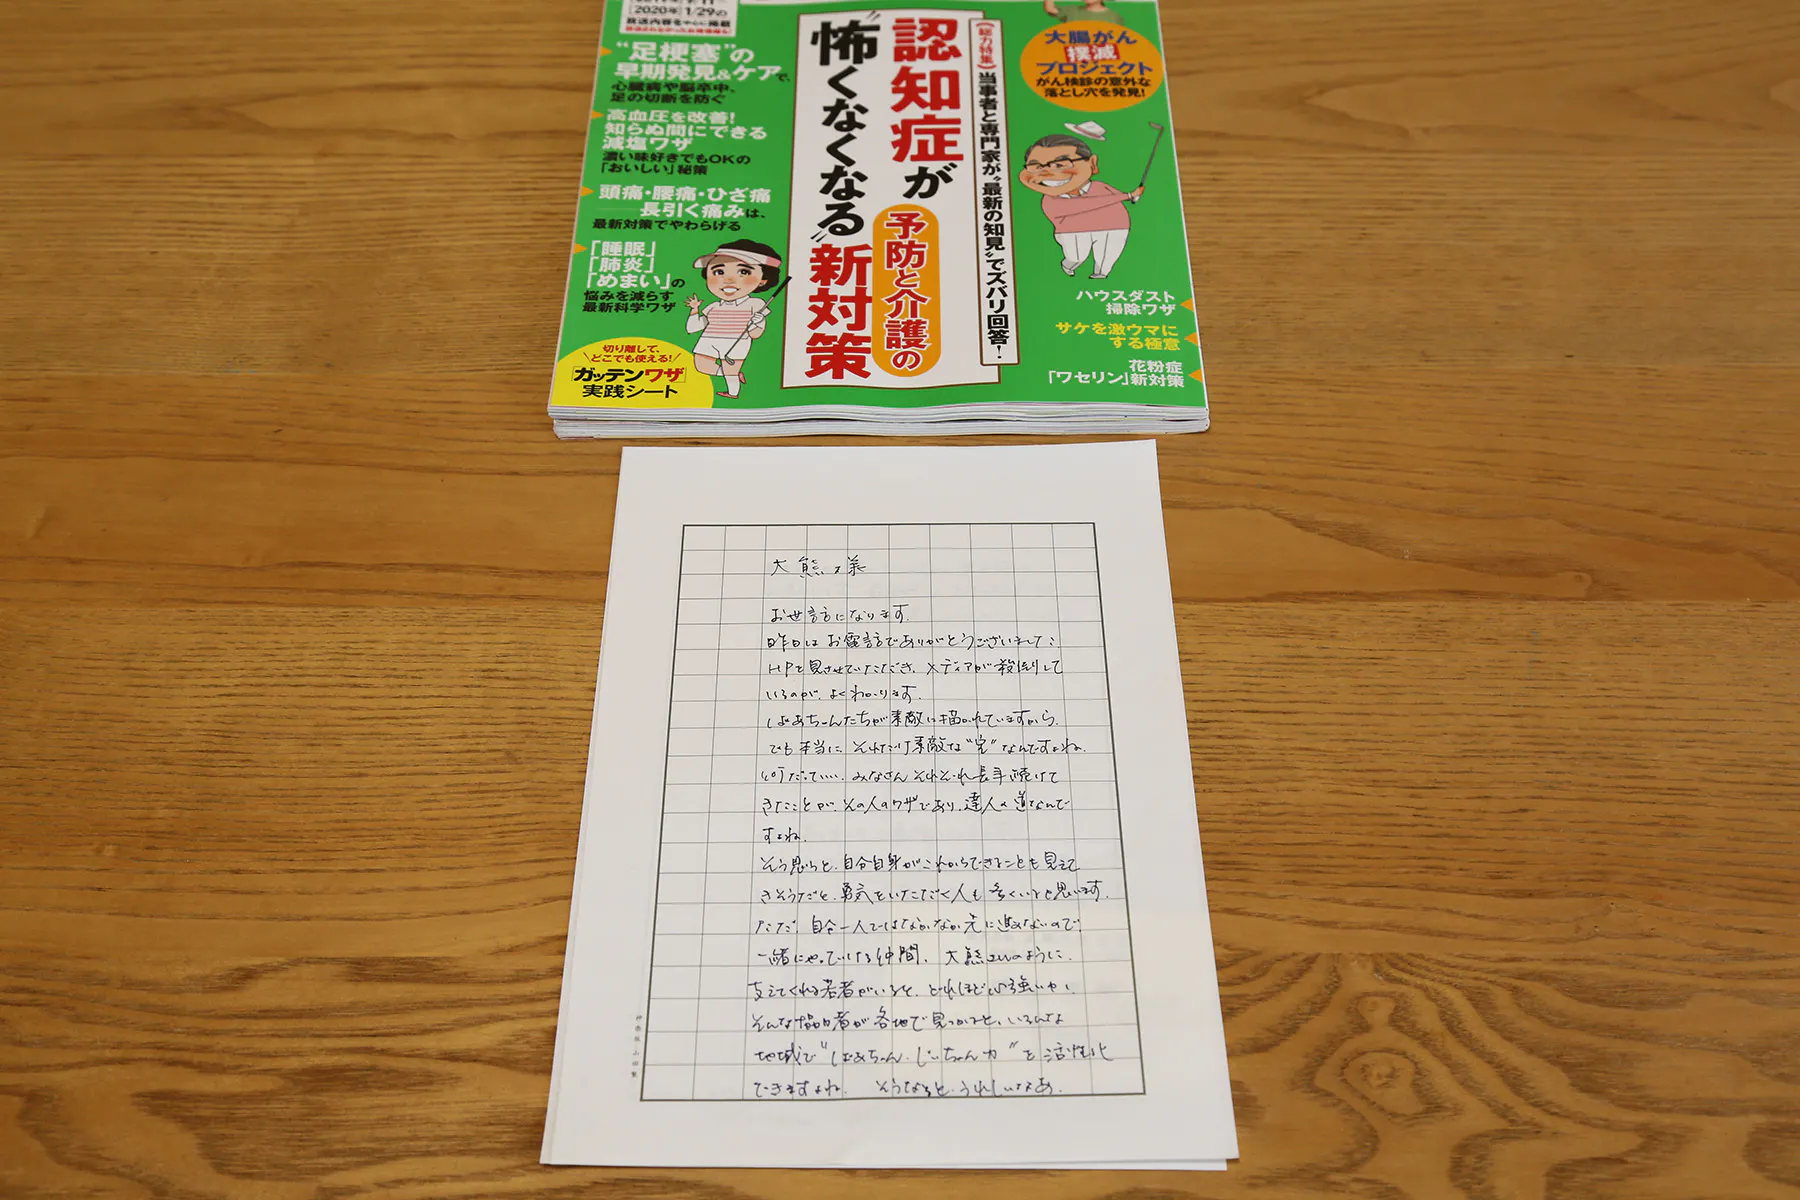 2020年1/29の
放送内容を中心に掲載
“足梗塞”の
早期発見&ケアで、
心臓病や脳卒中、
足の切断を防ぐ
高血圧を改善!
知らぬ間にできる
減塩ワザ
濃い味好きでもOKの
「おいしい」秘策
頭痛・腰痛・ひざ痛
長引く痛みは、
最新対策でやわらげる
「睡眠」
「肺炎」
「めまい」の
悩みを減らす
最新科学ワザ
切り離して、
どこでも使える!
「ガッテンワザ」
実践シート
《総力特集》当事者と専門家が“最新の知見”でズバリ回答!
認知症が
“怖くなくなる”
予防と介護の
新対策
大腸がん
撲滅
プロジェクト
がん検診の意外な
落とし穴を発見!
ハウスダスト
掃除ワザ
サケを激ウマに
する極意
花粉症
「ワセリン」新対策
大熊様
お世話になります。
昨日はお電話でありがとうございました。
HPを見させていただき、メディアが殺到して
いるのが、よくわかります。
ばあちゃんたちが素敵に描かれていますから。
でも本当に、それだけ素敵な
なんですよね。
何だっていい、みなさんそれぞれ長年続けて
きたことが、その人のワザであり、達人の道なんで
すよね。
そう思うと、自分自身がこれからできることも見えて
きそうだと、勇気をいただく人も多くいると思います。
ただ、自分一人ではなかなか先に進めないので、
一緒にやっていける仲間、大熊さんのように、
支えてくれる若者がいると、どれほど心強いか、
そんな協力者が各地で見つかると、いろんな
地域で“ばあちゃん、じいちゃん力”を活性化
できますよね。そうなると、うれしいなあ。